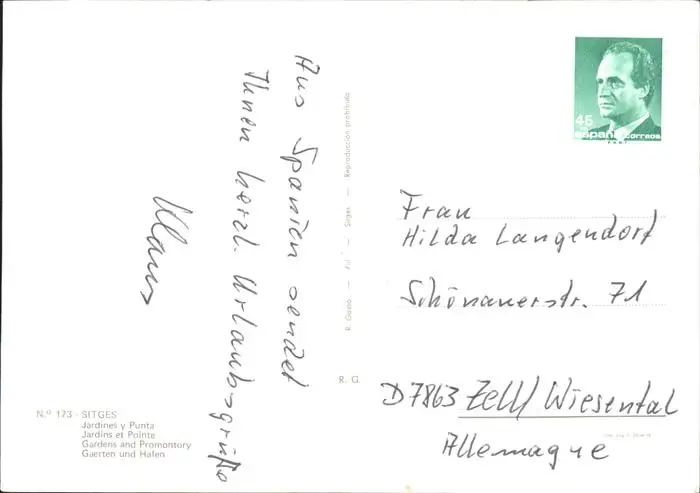 Aus Spanien sendet
Ihnen herzl. Urlaubsgrüße
Klaus
Nº 173 - SITGES
Jardines y Punta
Jardins et Pointe
Gardens and Promontory
Gaerten und Hafen
Sitges — Reproducción prohibida
R. G.
45
españa correos
Frau
Hilda Langendorf
Schönauerstr. 71
D 7863 Zell/Wiesental
Allemagne